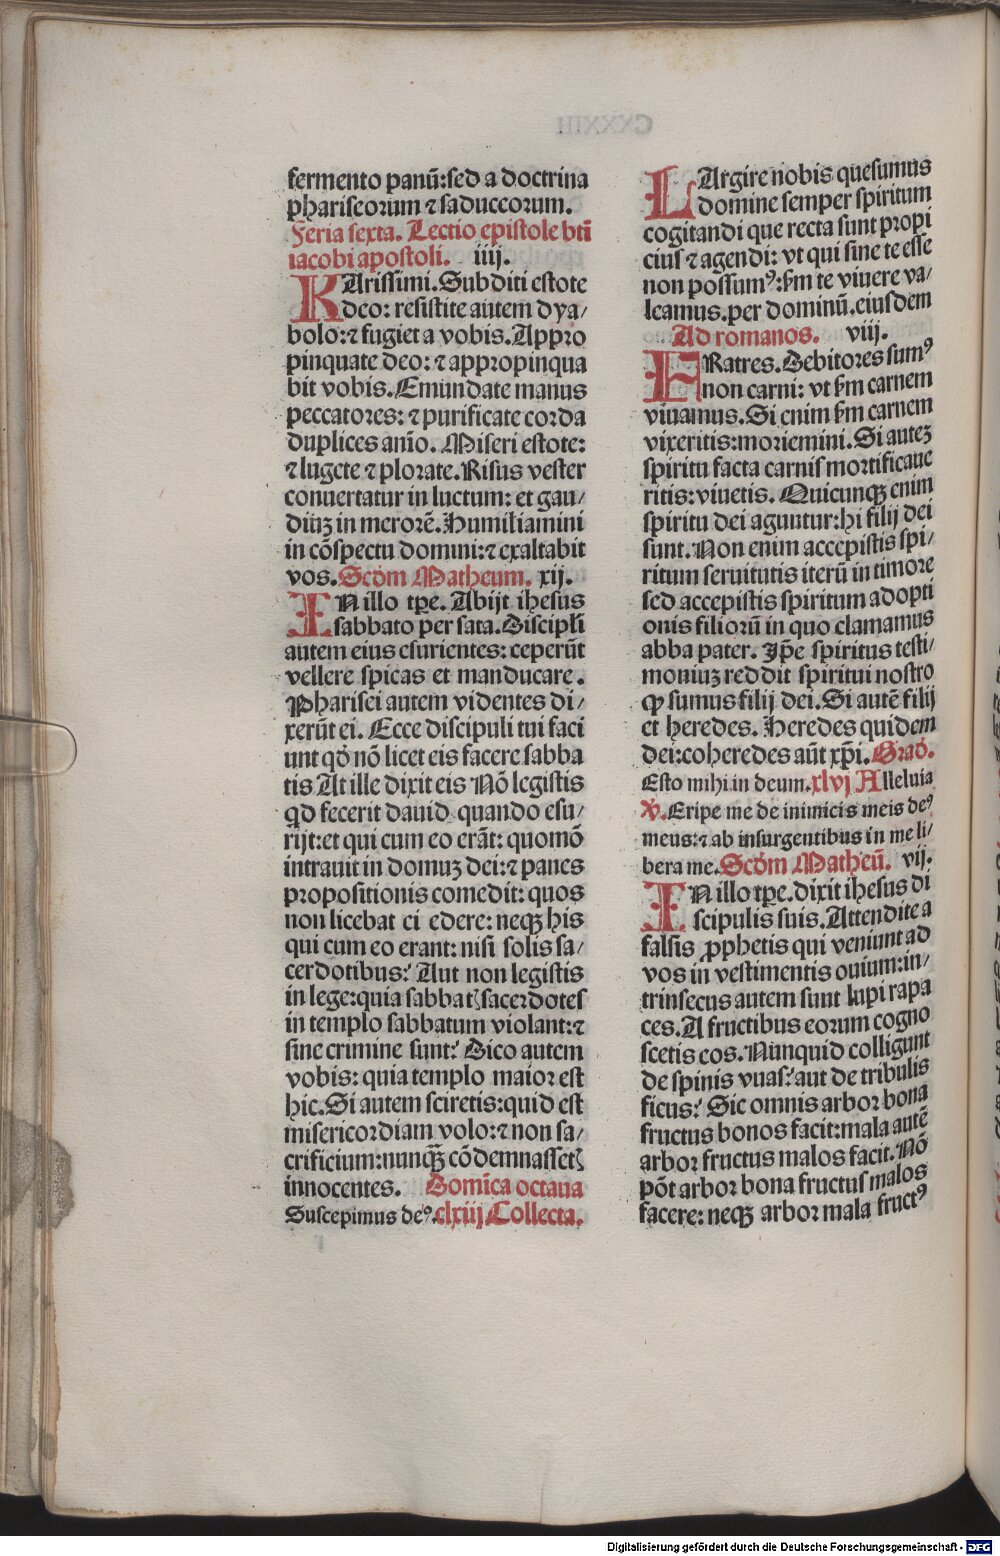 fermento panū:sed a doctrina
phariseorum ⁊ saduccorum.
Feria sexta. Lectio epistole bti̅
iacobi apostoli. iiij.
KArissimi. Subditi estote
deo: resistite autem dya/
bolo:⁊ fugiet a vobis. Appro
pinquate deo: ⁊ appropinqua
bit vobis. Emundate manus
peccatores: ⁊ purificate corda
duplices anīo. Miseri estote:
⁊ lugete ⁊ plorate. Risus vester
conuertatur in luctum: et gau/
diūꝫ in merorē. Humiliamini
in cōspectu domini:⁊ exaltabit
vos. Scd̓m Matheum. xij.
IN illo tꝑe. Abijt ihesus
sabbato per sata. Discipl̓i
autem eius esurientes: ceperūt
vellere spicas et manducare.
Pharisei autem videntes di/
xerūt ei. Ecce discipuli tui faci
unt qd̓ nō licet eis facere sabba
tis At ille dixit eis Nō legistis
qd̓ fecerit dauid quando esu/
rijt:et qui cum eo erāt: quomō
intrauit in domuꝫ dei:⁊ panes
propositionis comedit: quos
non licebat ei edere: neqꝫ his
qui cum eo erant: nisi solis sa/
cerdotibus? Aut non legistis
in lege:quia sabbatꝭ sacerdotes
in templo sabbatum violant:⁊
sine crimine sunt? Dico autem
vobis: quia templo maior est
hic. Si autem sciretis:quid est
misericordiam volo:⁊ non sa/
crificium:nunqꝫ̄ cōdemnassetꝭ
innocentes. Domi̅ca octaua
Suscepimus deꝰ. clxiij Collecta.
LArgire nobis quesumus
domine semper spiritum
cogitandi que recta sunt propi
cius ⁊ agendi: vt qui sine te esse
non possumꝰ: ẜm te viuere va/
leamus. per dominū. eiusdem
Ad romanos. viij.
FRatres. Debitores sumꝰ
non carni: vt ẜm carnem
viuamus. Si enim ẜm carnem
vixeritis:moriemini. Si auteꝫ
spiritu facta carnis mortificaue
ritis: viuetis. Quicunqꝫ enim
spiritu dei aguntur: hi filij dei
sunt. Non enim accepistis spi/
ritum seruitutis iterū in timore
sed accepistis spiritum adopti
onis filiorū in quo clamamus
abba pater. Ip̄e spiritus testi/
moniuꝫ reddit spiritui nostro
ꝙ sumus filij dei. Si autē filij
et heredes. Heredes quidem
dei:coheredes aūt xp̄i. Grad̓.
Esto mihi in deum. xlvj Alleluia
℣. Eripe me de inimicis meis deꝰ
meus:⁊ ab insurgentibus in me li/
bera me. Scd̓m Matheū. vij.
IN illo tꝑe. dixit ihesus di
scipulis suis. Attendite a
falsis ꝓphetis qui veniunt ad
vos in vestimentis ouium:in/
trinsecus autem sunt lupi rapa
ces. A fructibus eorum cogno
scetis eos. Nunquid colligunt
de spinis vuas? aut de tribulis
ficus? Sic omnis arbor bona
fructus bonos facit:mala autē
arbor fructus malos facit. Nō
pōt arbor bona fructus malos
facere: neqꝫ arbor mala fructꝰ
Digitalisierung gefördert durch die Deutsche Forschungsgemeinschaft - DFG